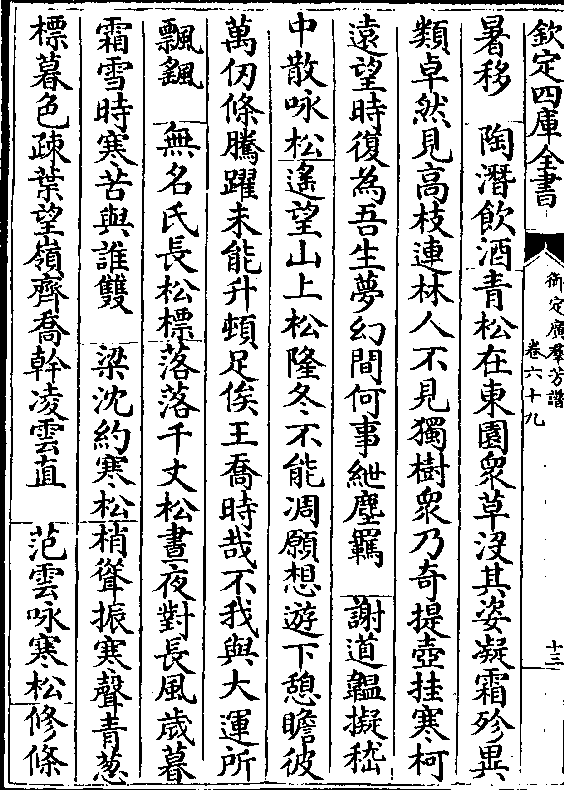 欽定四庫全書
御定廣羣芳譜
卷六十九
十三
暑移　陶潛飲酒青松在東園衆草沒其姿凝霜殄異
類卓然見高枝連林人不見獨樹衆乃奇提壺挂寒柯
遠望時復為吾生夢幻間何事紲塵羈　謝道韞擬嵇
中散咏松遙望山上松隆冬不能凋願想遊下憩瞻彼
萬仞條騰躍未能升頓足俟王喬時哉不我與大運所
飄颻　無名氏長松標落落千丈松晝夜對長風歲暮
霜雪時寒苦與誰雙　梁沈約寒松梢聳振寒聲青葱
標暮色疎葉望嶺齊喬幹凌雲直　范雲咏寒松修條